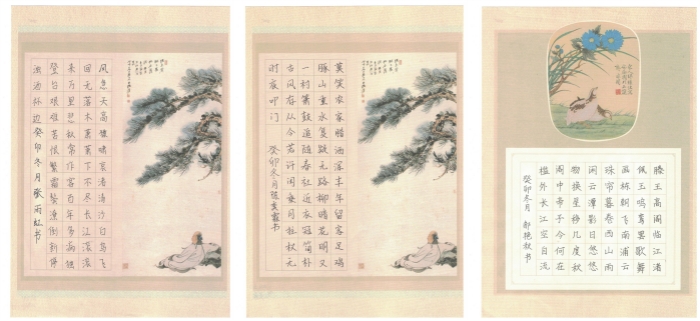 风急天高猿啸哀渚清沙白鸟飞
回无落木萧萧下不尽长江滚滚
来万里悲秋常作客百年多病独
登台艰难苦恨繁霜鬓潦倒新停
浊酒杯边癸卯冬月书
莫笑农家腊酒浑丰年留客足鸡
豚山重水复疑无路柳暗花明又
一村箫鼓追随春社近衣冠简朴
古风存从今若许闲乘月拄杖无
时夜叩门 癸卯冬月书
滕王高阁临江渚
佩玉鸣鸾罢歌舞
画栋朝飞南浦云
珠帘暮卷西山雨
闲云潭影日悠悠
物换星移几度秋
阁中帝子今何在
槛外长江空自流
癸卯冬月 书